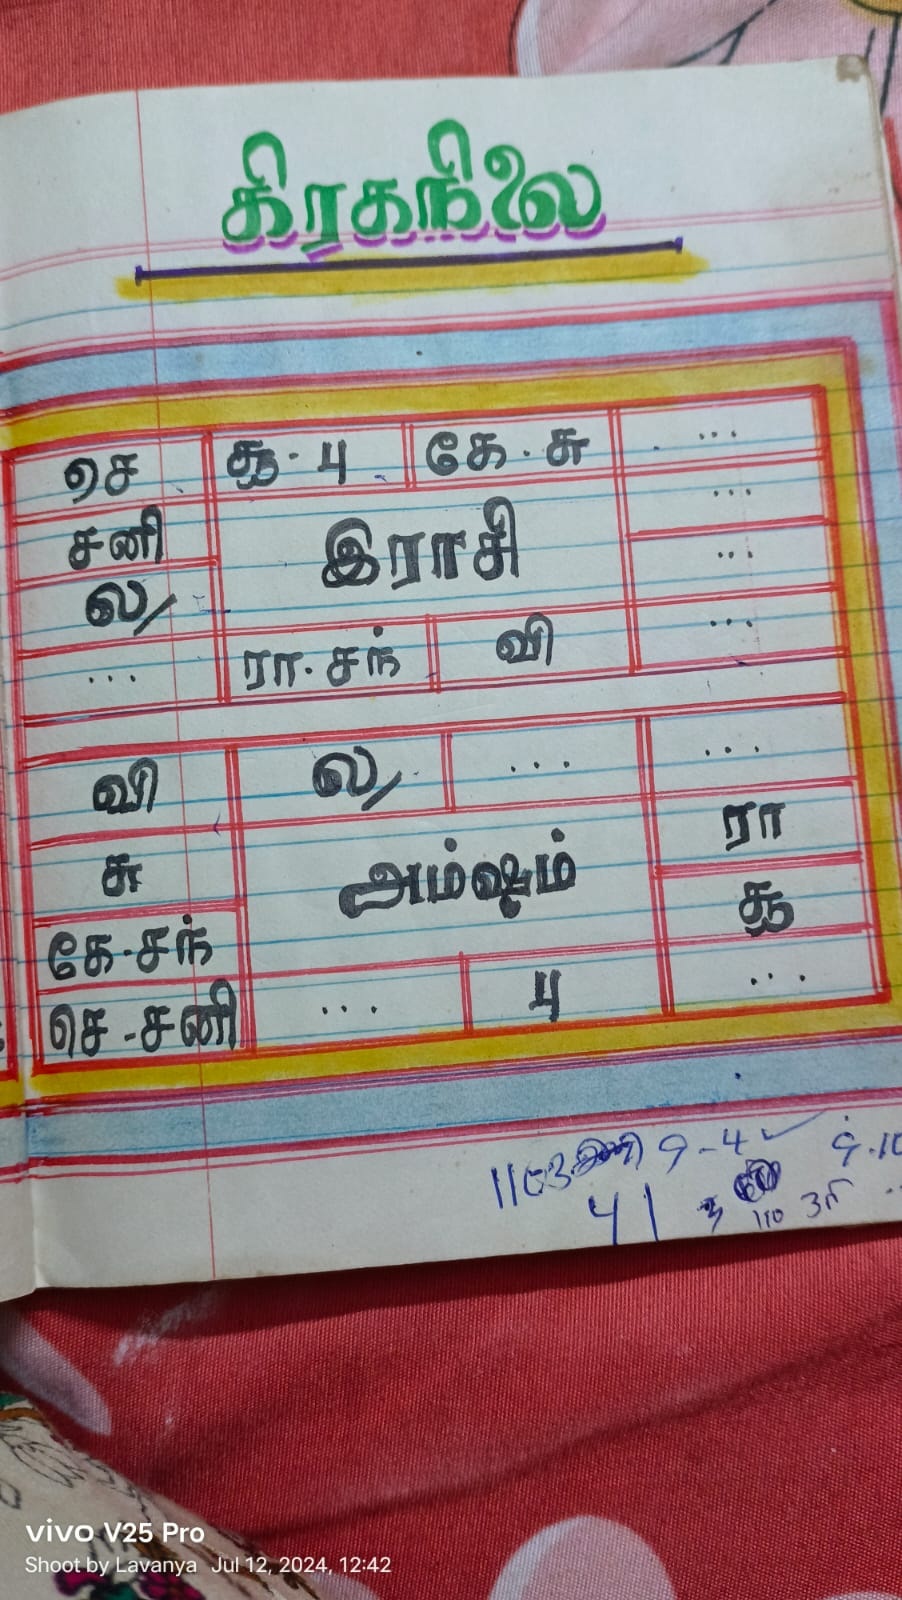 கிரகநிலை
செ சூ . பு கே . சு ...
சனி இராசி ...
ல/ ...
... ரா . சந் வி ...
வி ல/ ... ...
சு அம்ஷம் ரா
கே . சந் சூ
செ - சனி ... பு ...
9 - 4
41
110
vivo V25 Pro
Shoot by Lavanya Jul 12, 2024, 12:42